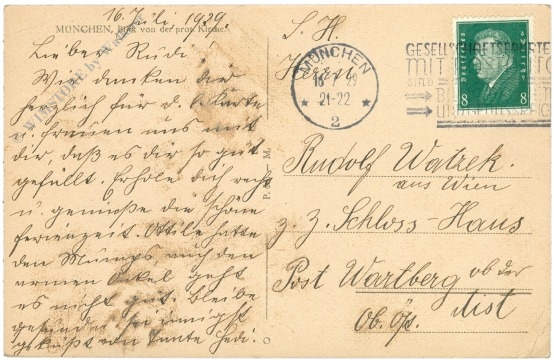 16. Juli 1929.
MÜNCHEN, Blick von der prot. Kirche.
Lieber Rudi!
Wir danken dir
herzlich für d. l. Karte
u. freuen uns mit
dir, daß es dir so gut
gefällt. Erhole dich recht
u. genieße die schöne
Ferienzeit. Ottile hatte
den Mumps, auch den
armen Onkel geht
es nicht gut. bleibe
gesund, sei innigst
geküßt von Tante Hedi.
P. M.
S. H.
Herrn
MÜNCHEN
16 29
21-22
2
MIT
SIND
DEUTSCHES REICH
8 8
Rudolf Watzek.
aus Wien
z. z. Schloss-Haus
Post Wartberg ob der
Aist
Ob. Öst.